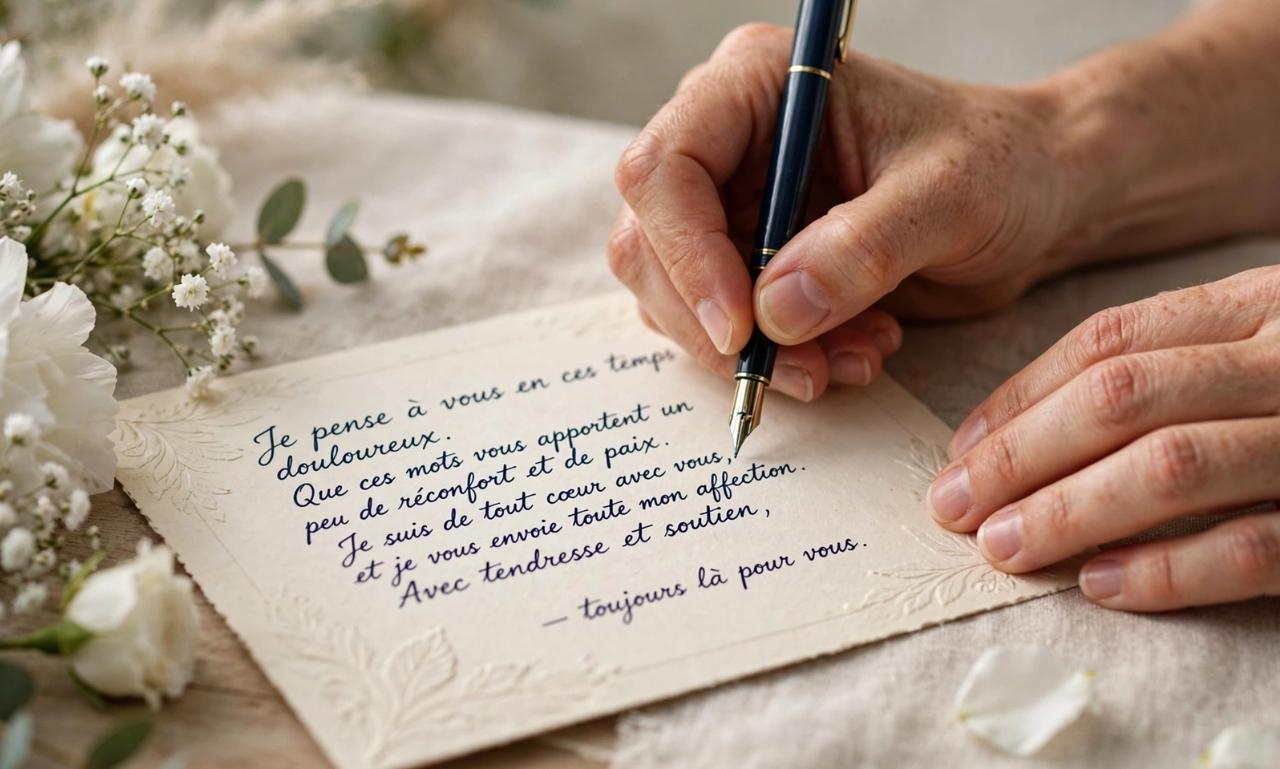 Je pense à vous en ces temps
douloureux.
Que ces mots vous apportent un
peu de réconfort et de paix.
Je suis de tout cœur avec vous,
et je vous envoie toute mon affection.
Avec tendresse et soutien,
— toujours là pour vous.